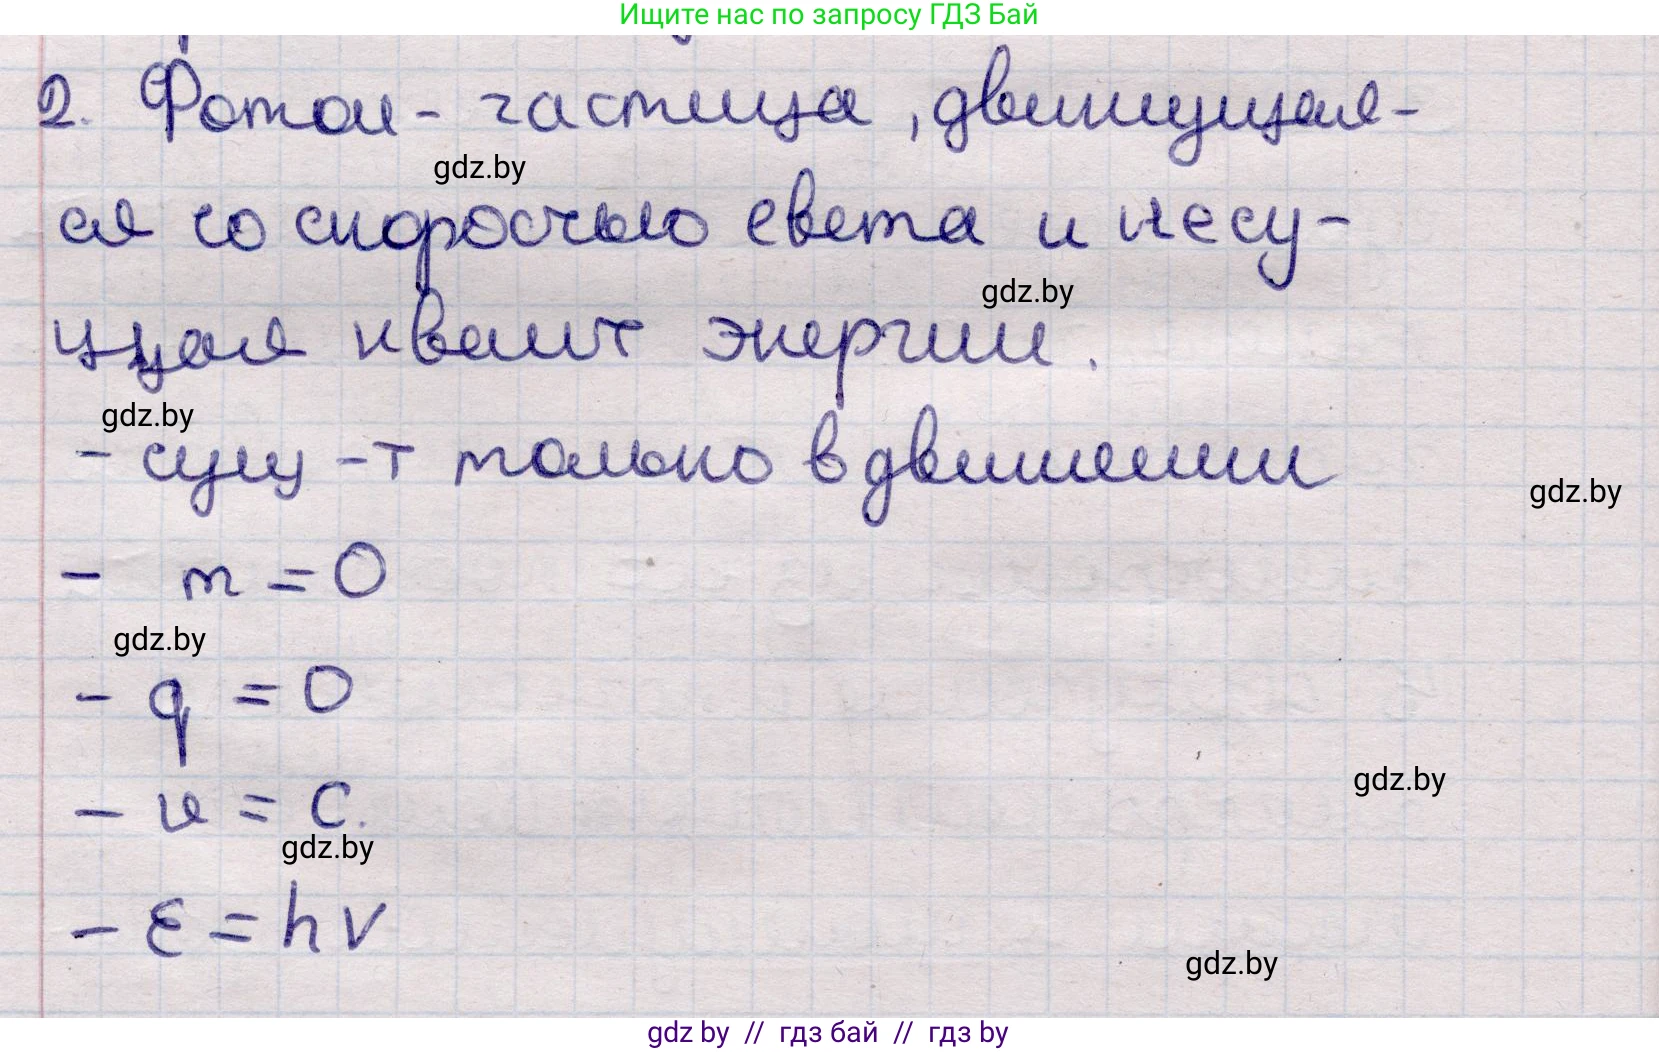 Ищите нас по запросу ГДЗ Бай
2. Фотон - частица, движущая-
ся со скоростью света и несу-
gdz.by
щая квант энергии.
gdz.by
gdz.by
- сущ-т только в движении
gdz.by
- m = 0
gdz.by
- q = 0
gdz.by
- v = c.
gdz.by
- ε = hν
gdz.by
gdz by // гдз бай // гдз by